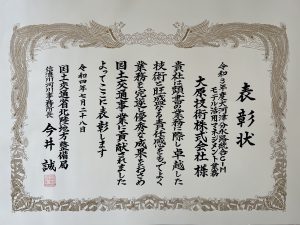 表彰状
令和3年度大河津分水路統合CIM
モデル活用マネジメント業務
大原技術株式会社 様
貴社は頭書の業務に際し卓越した
技術と旺盛なる責任感をもってよく
業務を完遂し優秀な成果をおさめ
国土交通事業に貢献されました
よってここに表彰します
令和四年七月二十八日
国土交通省北陸地方整備局
信濃川河川事務所長
今井 誠